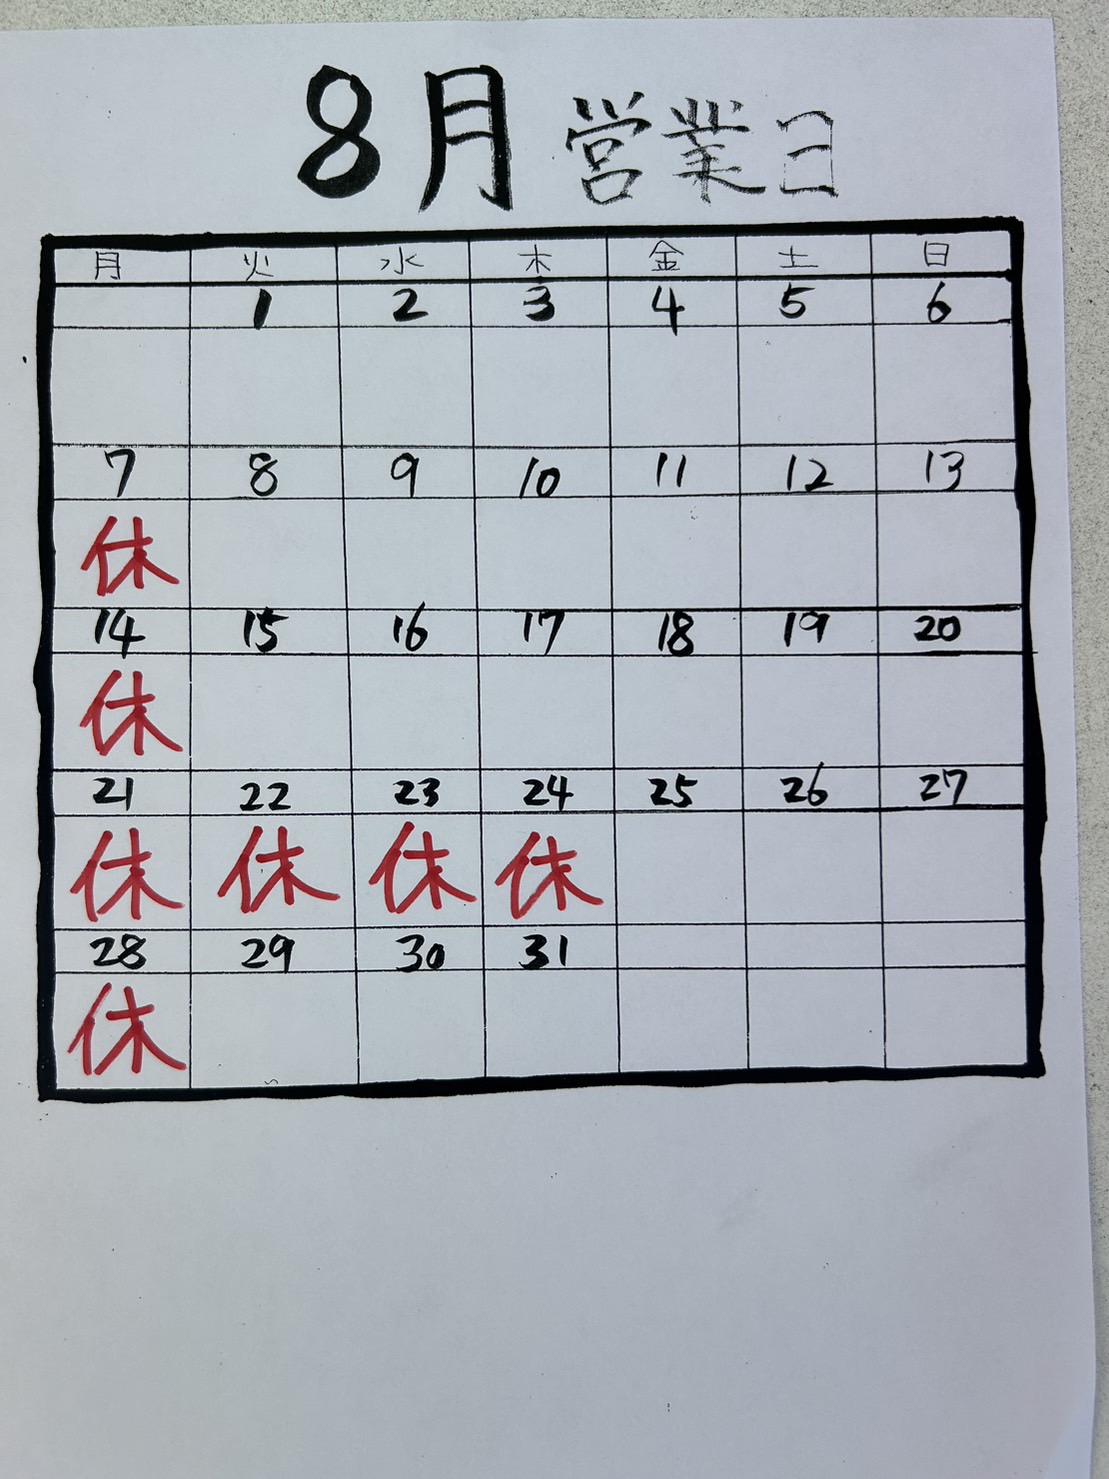 8月 営業日
月 火 水 木 金 土 日
1 2 3 4 5 6
7 8 9 10 11 12 13
休
14 15 16 17 18 19 20
休
21 22 23 24 25 26 27
休 休 休 休
28 29 30 31
休